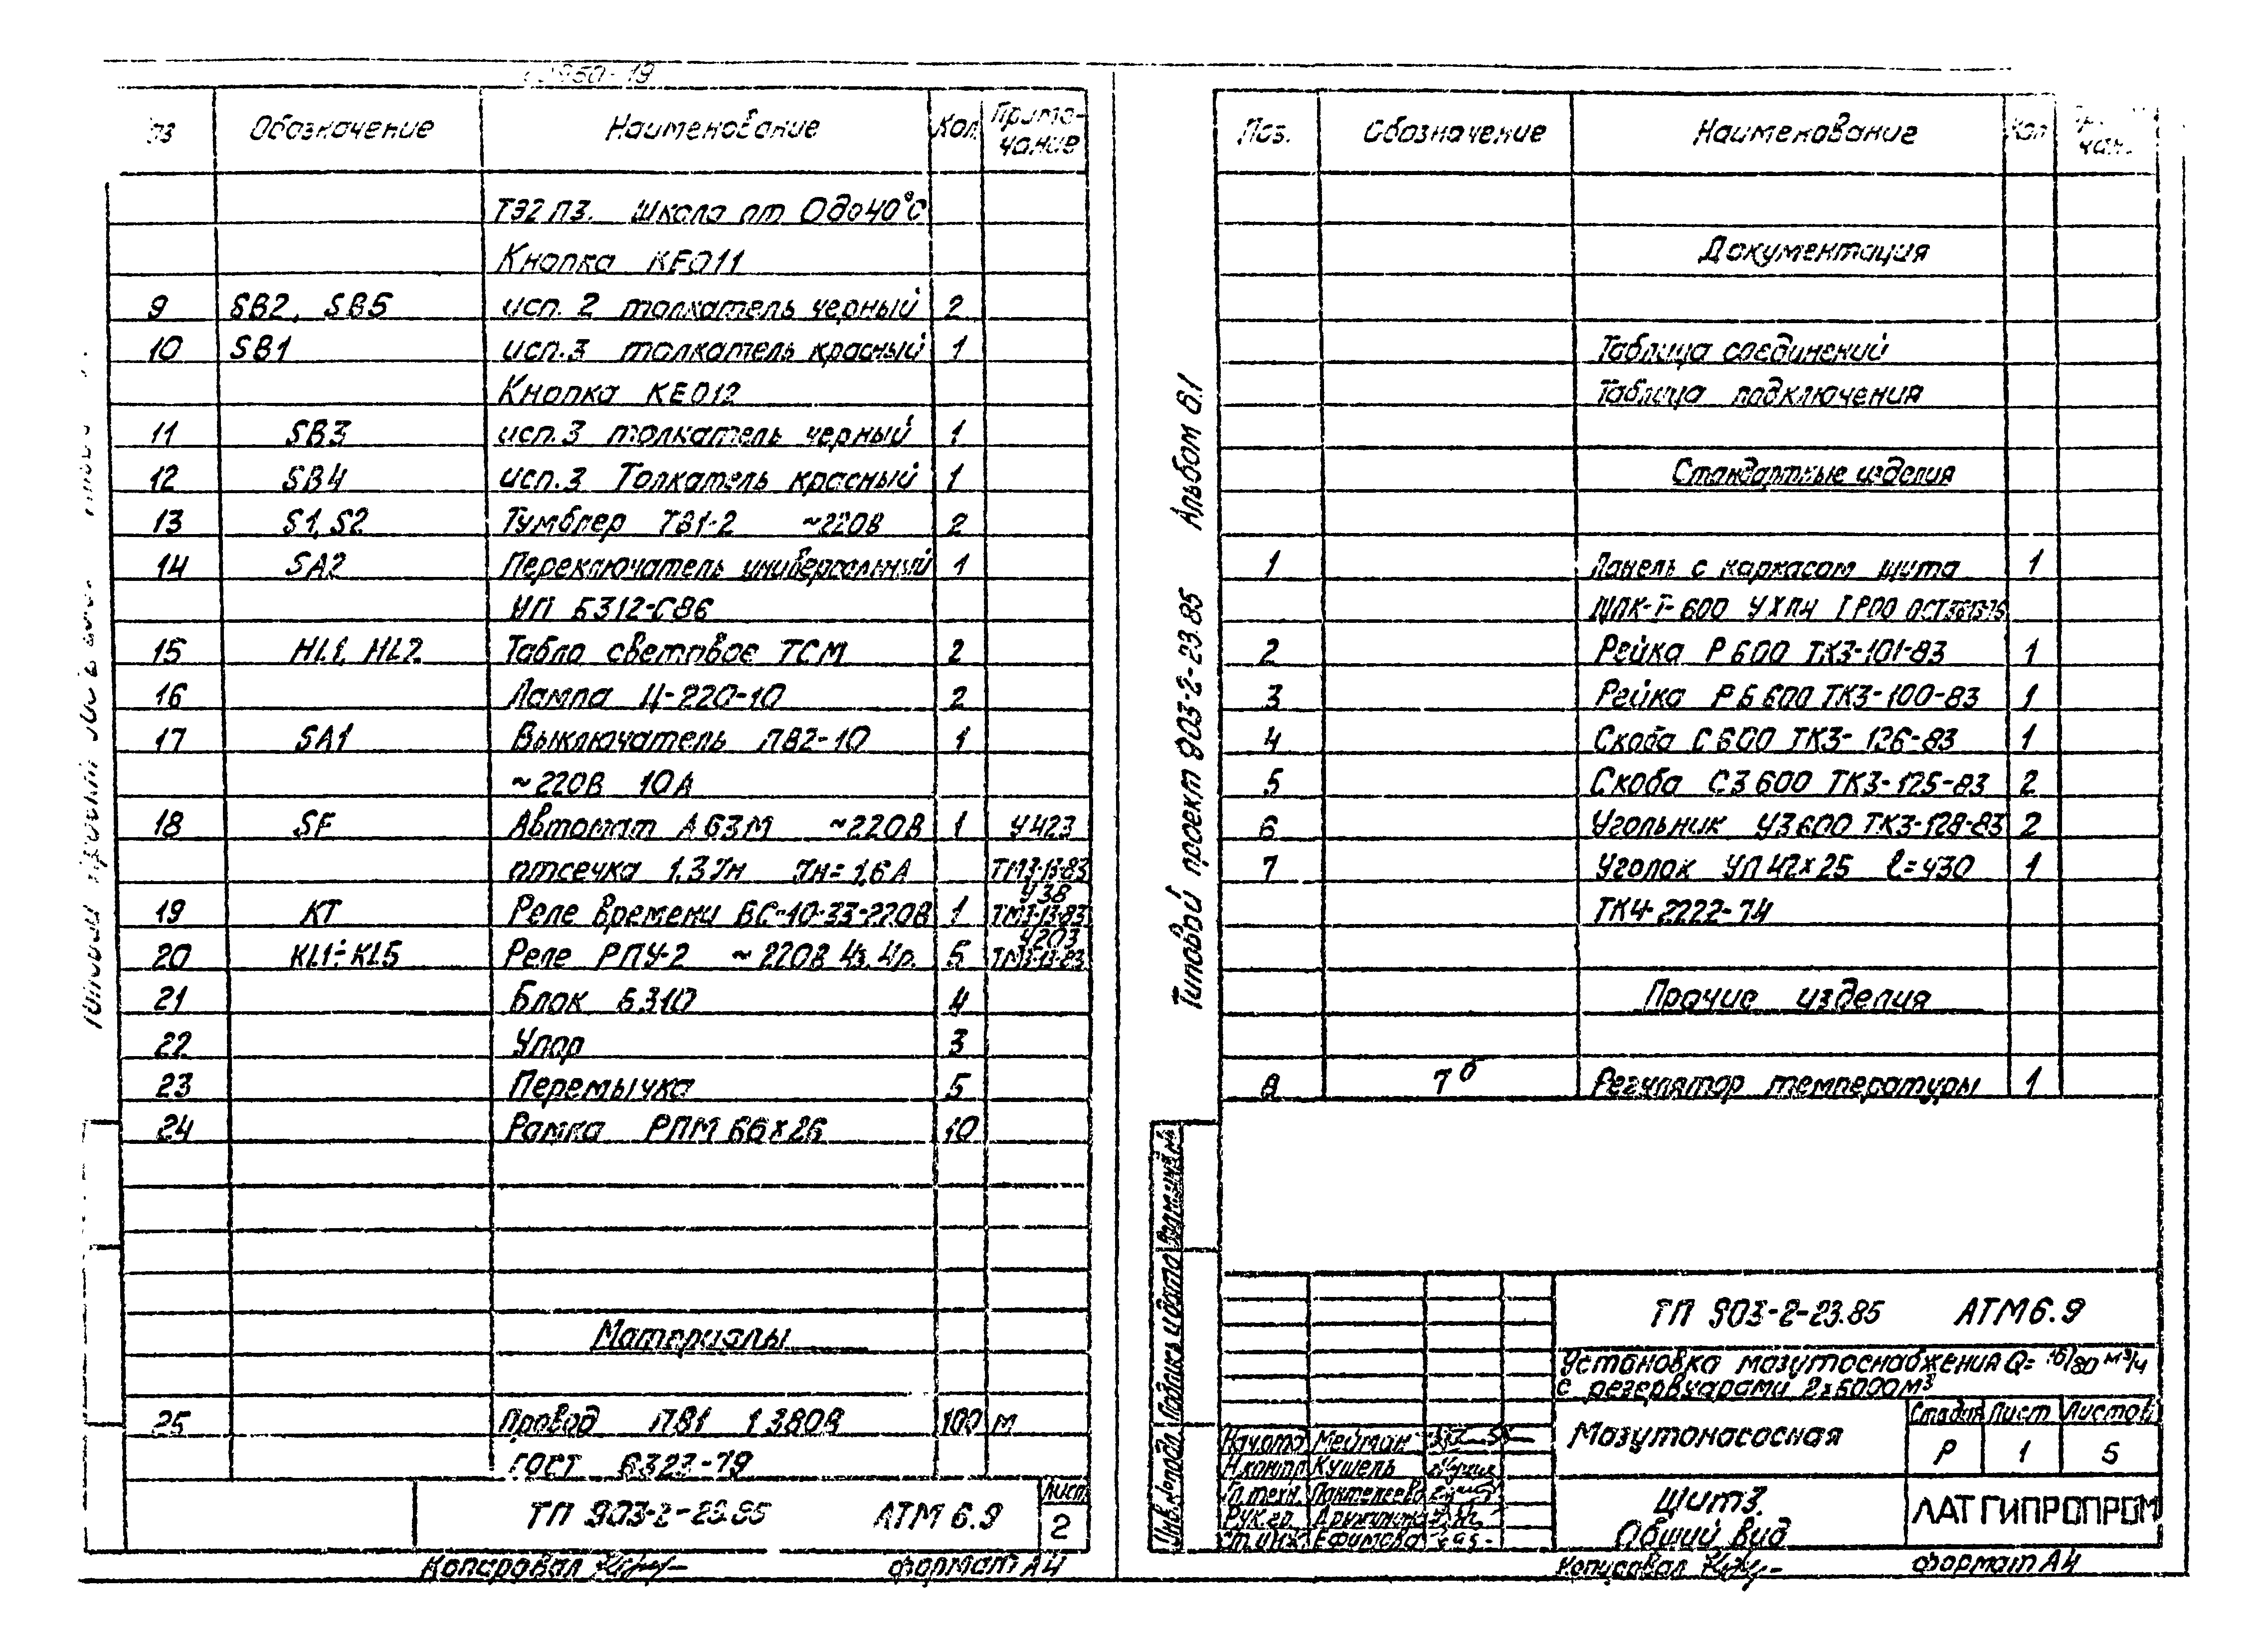 Обозначение Наименование Кол. Приме-
чание
ТЭ2 П3. Шкала от 0 до 40°С
Кнопка КЕ011
9 SB2, SB5 исп. 2 толкатель черный 2
10 SB1 исп. 3 толкатель красный 1
Кнопка КЕ012
11 SB3 исп. 3 толкатель черный 1
12 SB4 исп. 3 Толкатель красный 1
13 S1, S2 Тумблер ТВ1-2 ~220В 2
14 SA2 Переключатель универсальный 1
УП 5312-С86
15 HL1, HL2 Табло световое ТСМ 2
16 Лампа Ц-220-10 2
17 SA1 Выключатель ПВ2-10 1
~220В 10А
18 SF Автомат А63М ~220В 1 У423
отсечка 1,3 Iн Iн= 1,6 А ТМ3-13-83
19 KT Реле времени ВС-10-33-220В 1 У38 ТМ3-13-83
20 KL1÷KL5 Реле РПУ-2 ~220В 4з. 4р. 5 У203 ТМ3-13-83
21 Блок Б310 4
22 Упор 3
23 Перемычка 5
24 Рамка РПМ 66х26 10
Материалы
25 Провод ПВ1 1 380В 100 м
ГОСТ 6323-79
ТП 903-2-23.85 АТМ 6.9 Лист 2
Копировал формат А4
Типовой проект 903-2-23.85 Альбом 6.1
Поз. Обозначение Наименование Кол
Документация
Таблица соединений
Таблица подключения
Стандартные изделия
1 Панель с каркасом щита 1
ЩПК-I-600 УХЛ4 IP00
2 Рейка Р600 ТК3-101-83 1
3 Рейка РБ600 ТК3-100-83 1
4 Скоба С600 ТК3-126-83 1
5 Скоба С3 600 ТК3-125-83 2
6 Угольник У3600 ТК3-128-83 2
7 Уголок УП 42х25 ℓ=430 1
ТК4-2222-74
Прочие изделия
8 7б Регулятор температуры 1
Инв.№подл. Подпись и дата Взам.инв.№
ТП 903-2-23.85 АТМ 6.9
Установка мазутоснабжения Q= 16/80 м³/ч
с резервуарами 2х5000м³
Мазутонасосная
Стадия Лист Листов
Р 1 5
Нач.отд Мейман
Н.контр Кушель
Гл.техн. Пантелеева
Рук.гр.
Ст.инж. Ефимова
Щит 3.
Общий вид
ЛАТГИПРОПРОМ
Копировал формат А4